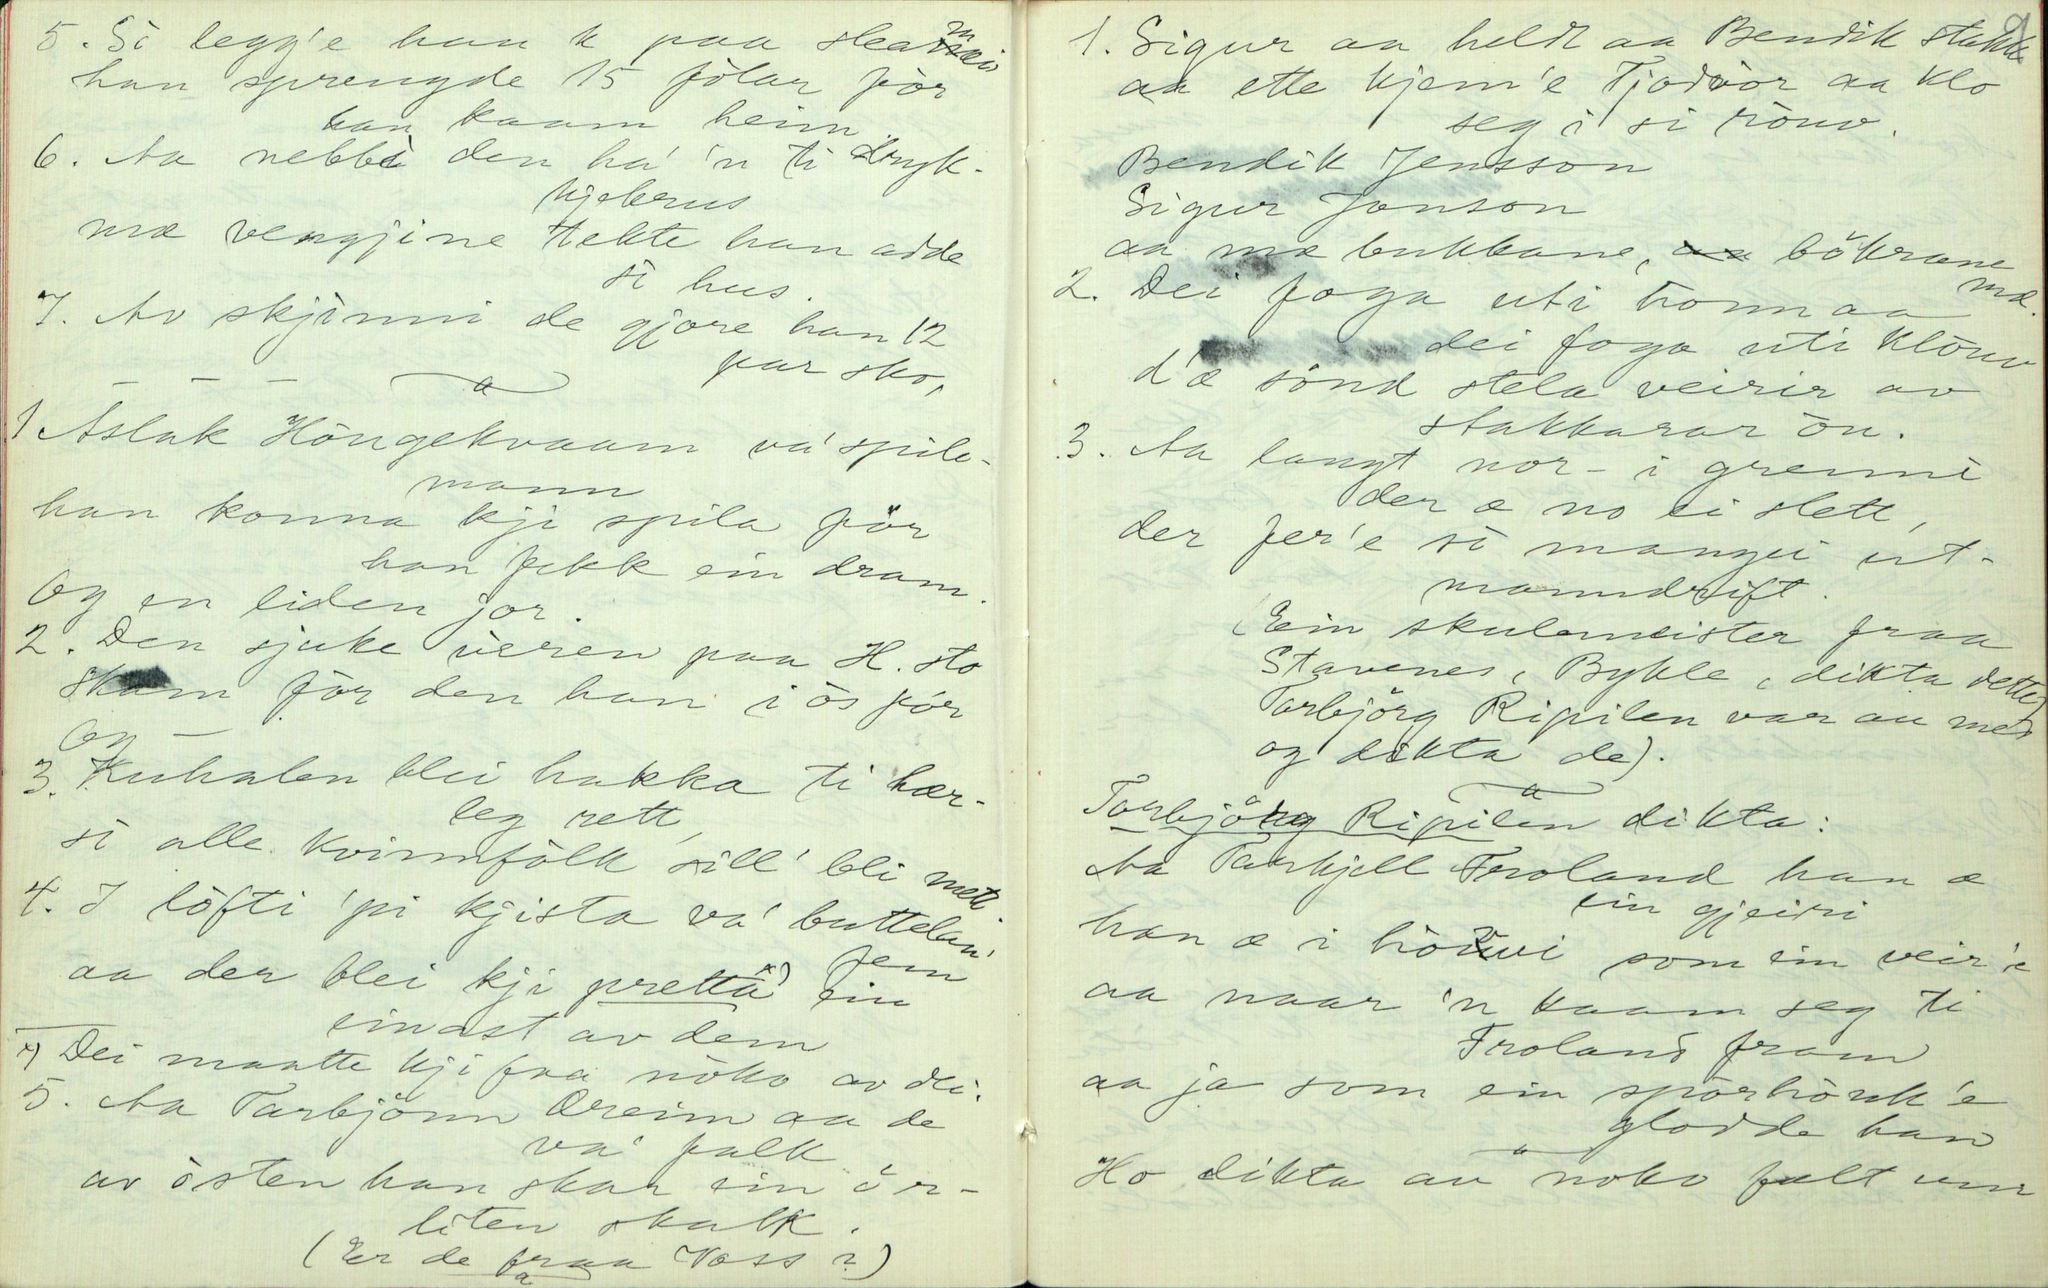 5. Så legg'e han k paa slea
han sprengde 15 folar för
han kaam heim.
6. Aa nebbè den ha' 'n ti dryk-
kjekrus
mæ vengjine tekte han adde
si hus.
7. Av skjinni de gjore han 12
par sko,
1 Aslak Höngekvaam va' spile-
mann
han konna kji spila för
han fekk ein dram.
Og en liden jor.
2. Den sjuke veren paa H. sto
Skam för den han i ós fór
Og —
3. Kuhalen blei hakka ti hær-
leg rett,
så alle kvinnfolk sill' bli mett.
4. I löfti 'pi kjista va' buttelan'
fem
aa der blei kji pretta x) ein
einast av dem
x) Dei maatte kji faa nöko av dei.
5. Aa Tarbjönn Öreim aa de
va' falk
av osten han skar ein ör-
liten skalk.
(Er de fraa Voss?)
9
1. Sigur aa heldt aa Bendik stakk
aa ette kjem'e Tjodvor aa klo
seg i si röuv.
Bendik Jensson
Sigur Jonson
aa mæ bukkane, bökrane
mæ.
2. Dei foga uti honn aa
dei foga uti klöuv
d'æ sönd stela veirir av
stakkarar ön.
3. Aa langt nor - i grenni
der æ no ei slett,
der fer'e så mangei ut-
manndrift.
(Ein skulemeister fraa
Stavenes, Bykle, dikta dette,
Tarbjörg Ripilen var au med
og dikta de).
Tarbjörg Ripilen dikta:
Aa Tarkjell Froland han æ
ein gjeiri
han æ i höuvi som ein veir'e
aa naar 'n kaam seg ti
Froland fram
aa ja som ein sporhönk'e
glodde han
Ho dikta au noko fælt um